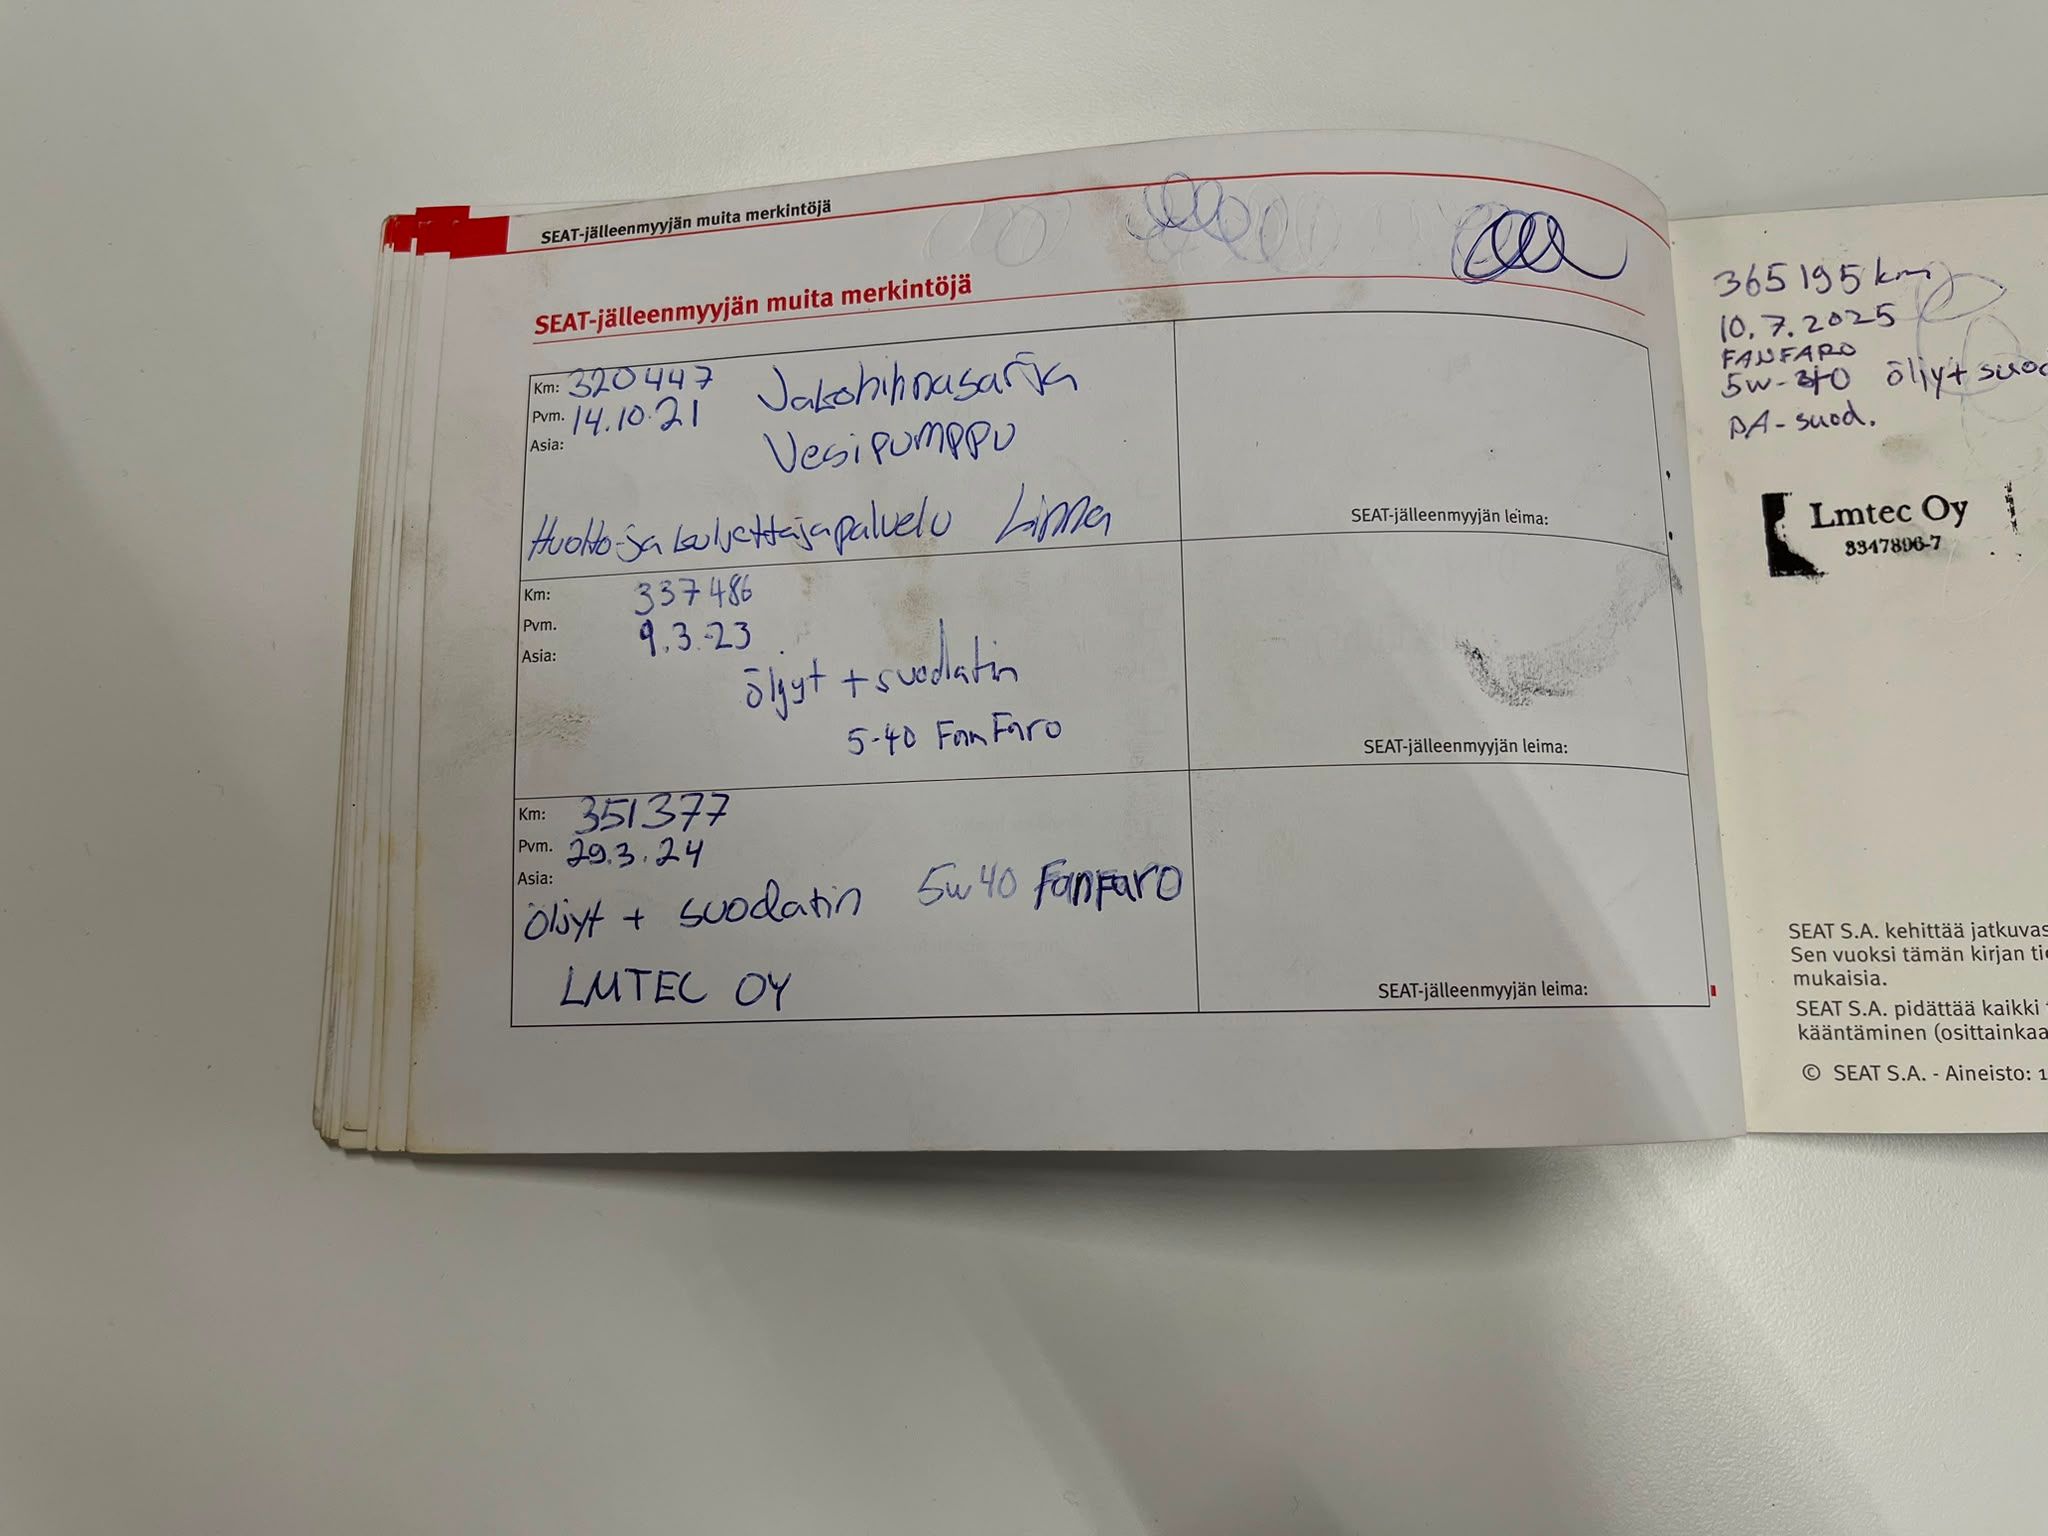 SEAT-jälleenmyyjän muita merkintöjä
SEAT-jälleenmyyjän muita merkintöjä
Km: 320447 Jakohihnasarja
Pvm. 14.10.21 Vesipumppu
Asia:
Huolto-ja kuljettajapalvelu Linna
SEAT-jälleenmyyjän leima:
Km: 337486
Pvm. 9.3.23
Asia:
öljyt + suodatin
5-40 FanFaro
SEAT-jälleenmyyjän leima:
Km: 351377
Pvm. 29.3.24
Asia:
öljyt + suodatin 5w40 FanFaro
LMTEC OY
SEAT-jälleenmyyjän leima:
365195 km
10.7.2025
FANFARO
öljyt + suod
suod.
Lmtec Oy
3347896-7
SEAT S.A. kehittää jatkuvas
Sen vuoksi tämän kirjan tie
mukaisia.
SEAT S.A. pidättää kaikki
kääntäminen (osittainkaa
© SEAT S.A. - Aineisto: 1